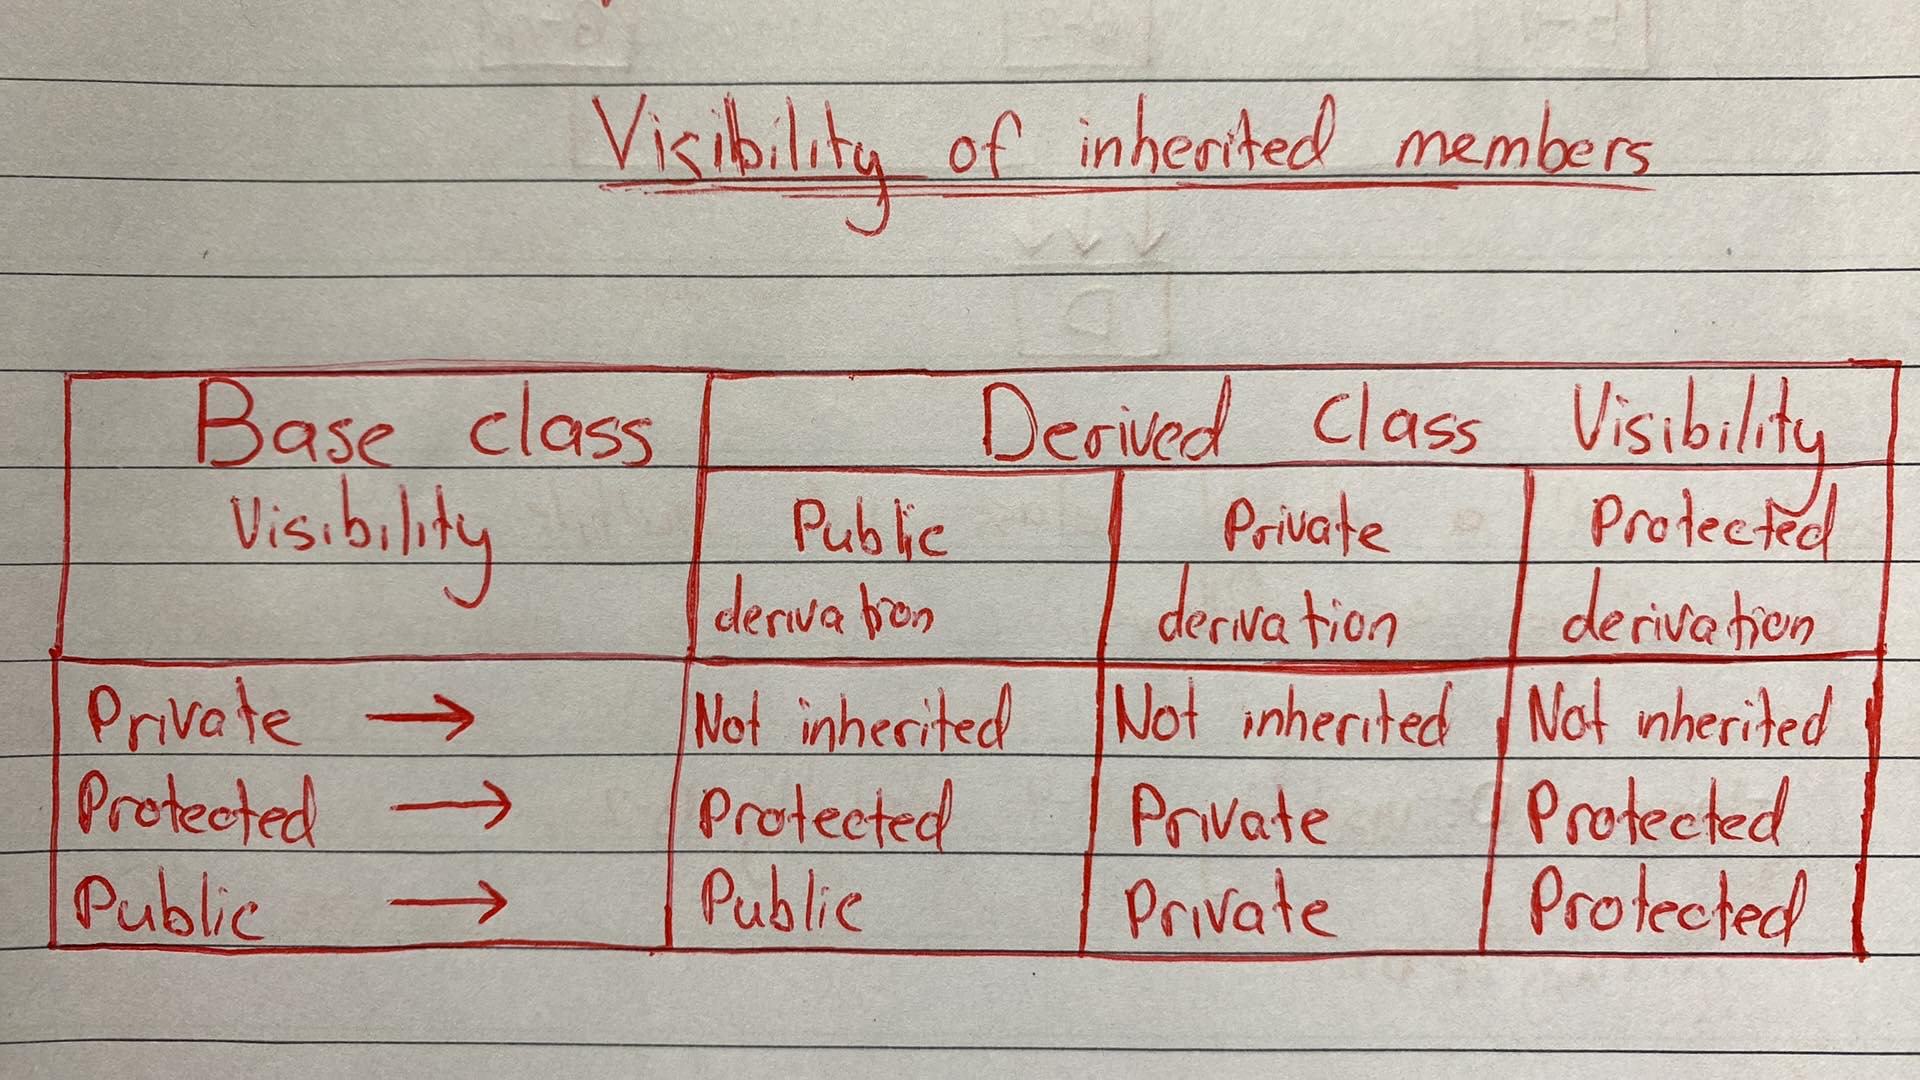 Visibility of inherited members
Base class Derived Class Visibility
Visibility Public Private Protected
derivation derivation derivation
Private → Not inherited Not inherited Not inherited
Protected → Protected Private Protected
Public → Public Private Protected